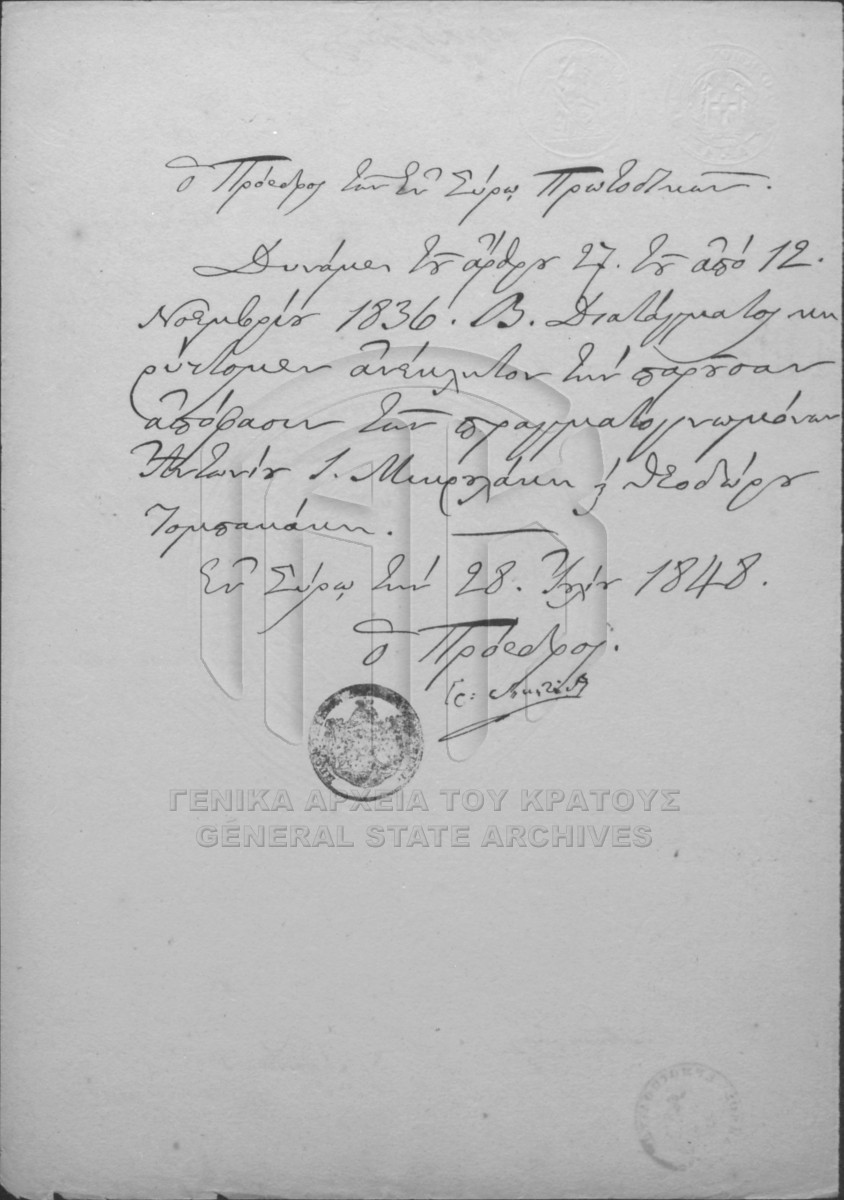 ὁ Πρόεδρος τῶν ἐν Σύρῳ Πρωτοδικῶν.
Δυνάμει τοῦ ἄρθρου 27. τοῦ ἀπό 12.
Νοεμβρίου 1836. Β. Διατάγματος κη
ρύττομεν ἀνέκκλητον τήν παροῦσαν
ἀπόφασιν τῶν πραγματογνωμόνων
Ἀντωνίου Ι. Μικρουλάκη ϗ Θεοδώρου
Τομπακάκη.
Ἐν Σύρῳ τήν 28. Ἰουλίου 1848.
ὁ Πρόεδρος.
ΓΕΝΙΚΑ ΑΡΧΕΙΑ ΤΟΥ ΚΡΑΤΟΥΣ
GENERAL STATE ARCHIVES